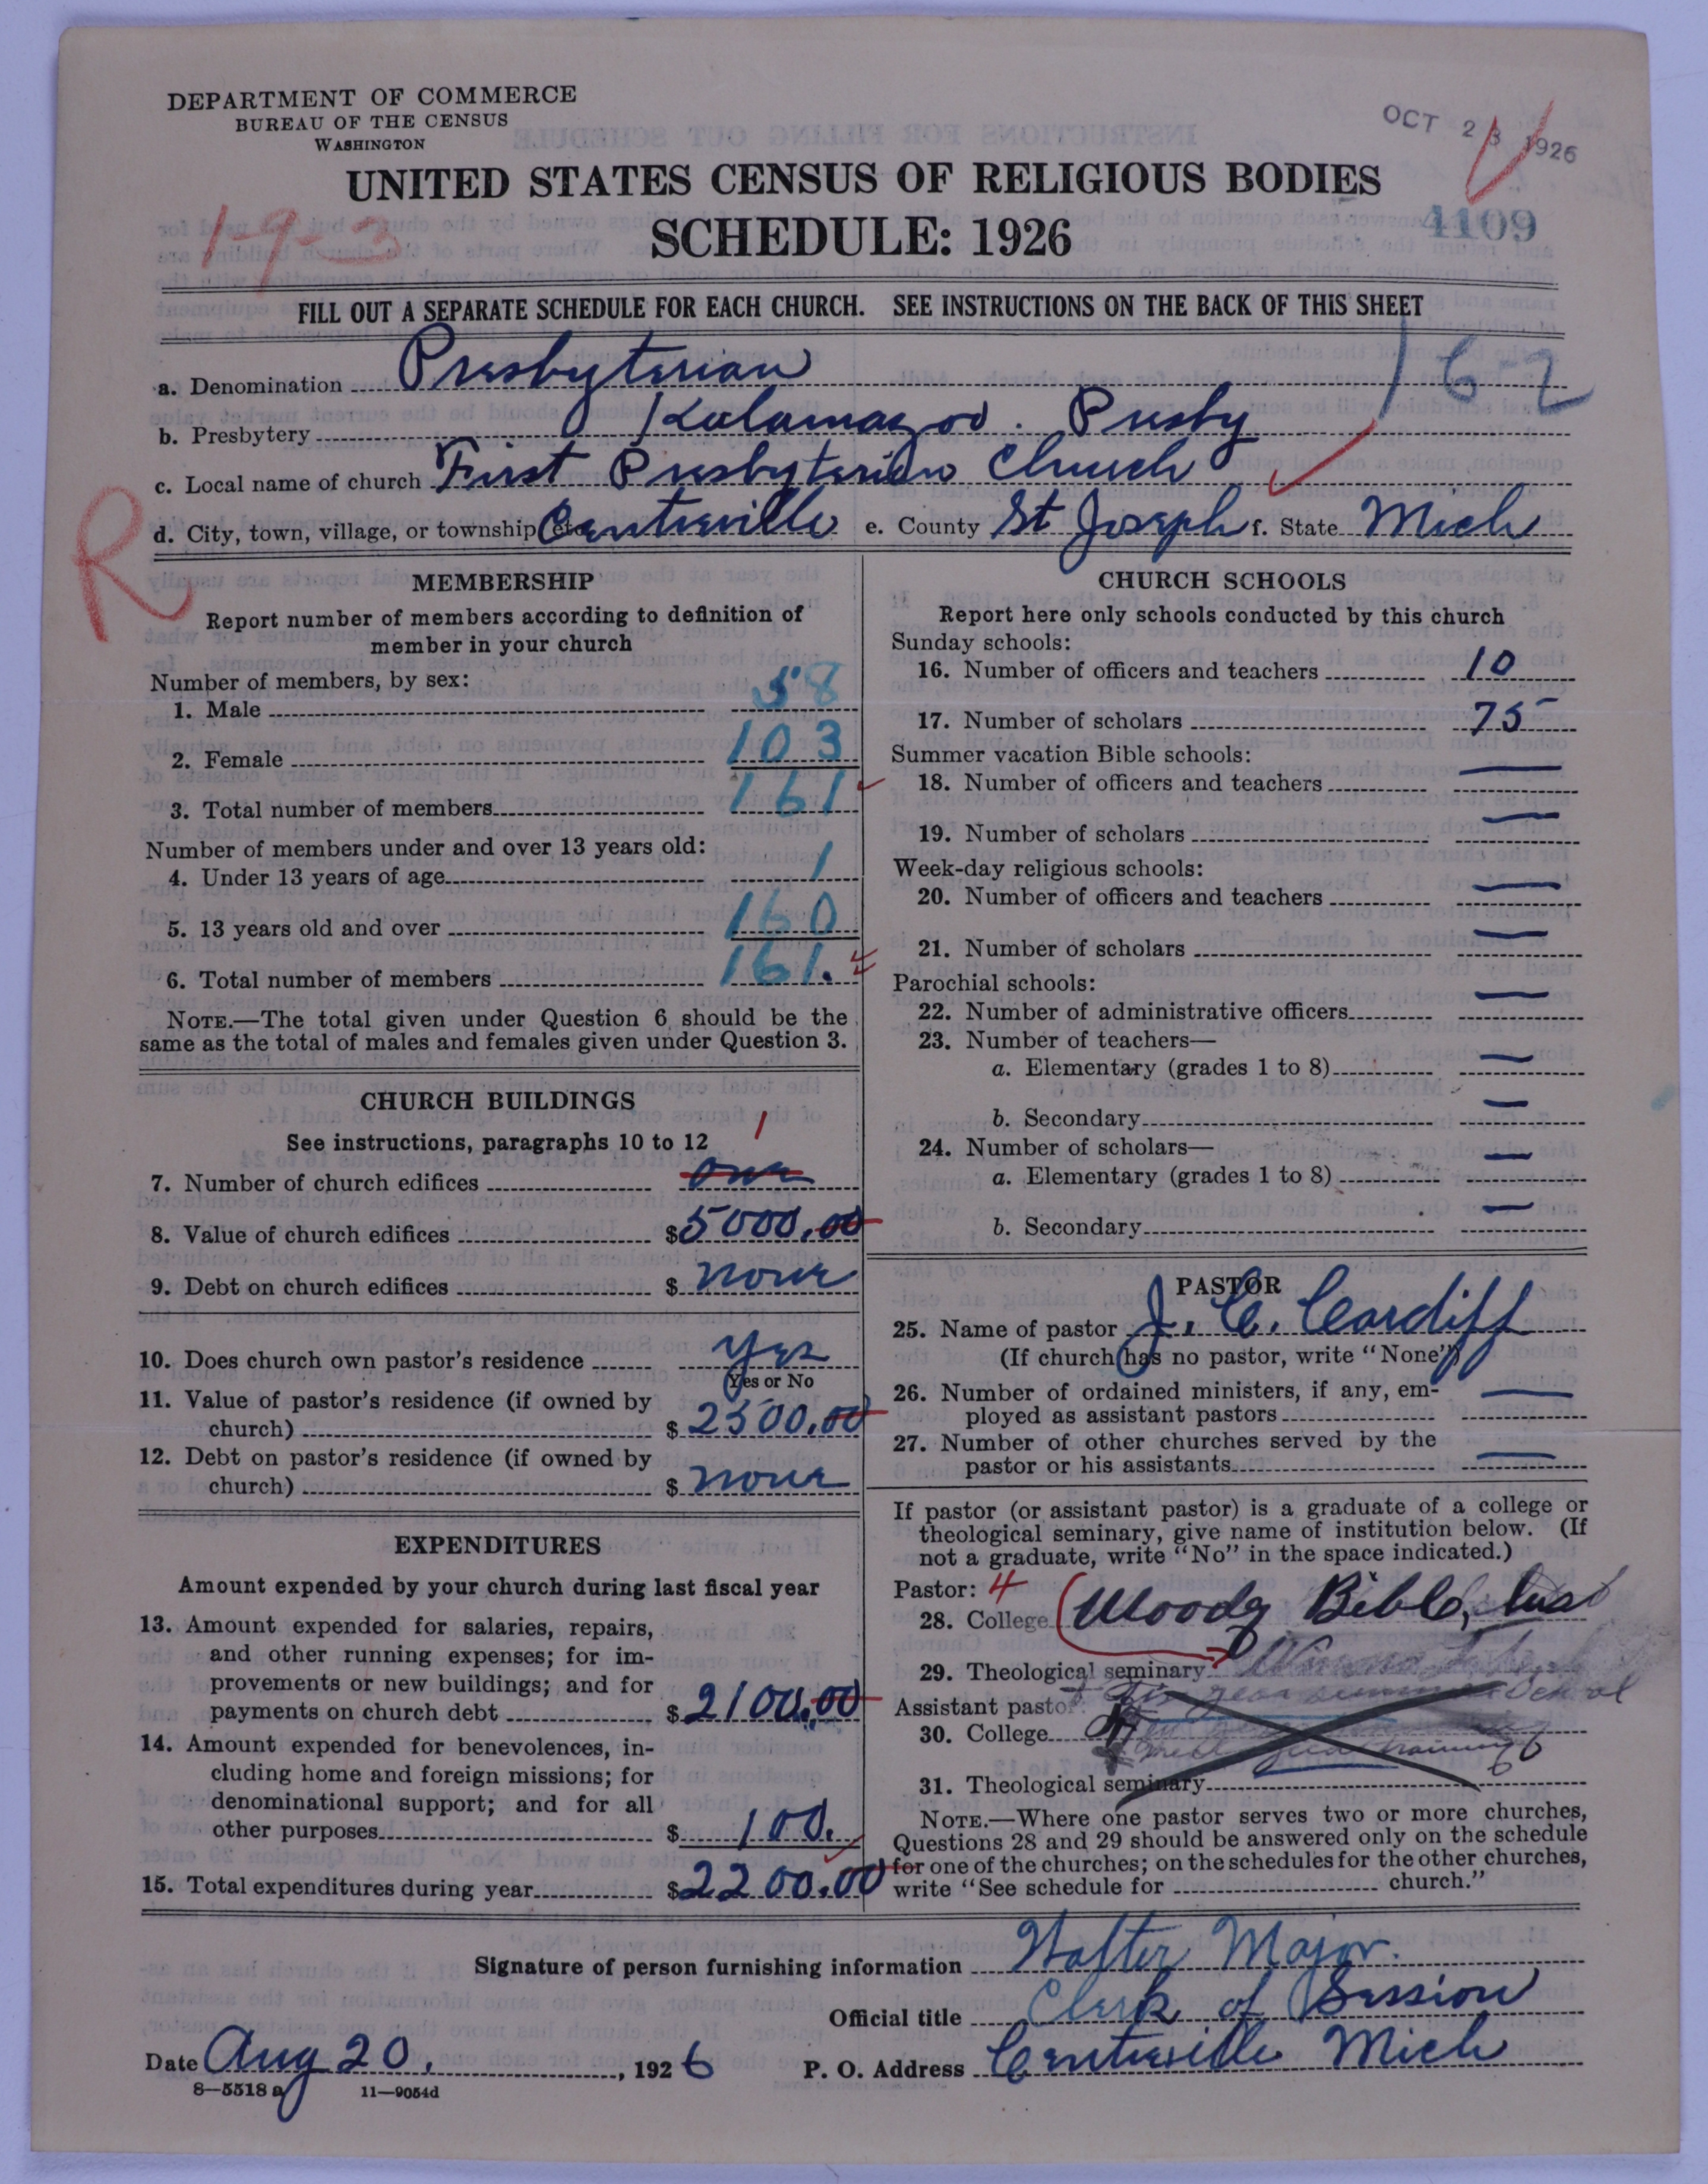 DEPARTMENT OF COMMERCE
BUREAU OF THE CENSUS
WASHINGTON
OCT 23 1926
UNITED STATES CENSUS OF RELIGIOUS BODIES
1-9-3
SCHEDULE: 1926
4109
FILL OUT A SEPARATE SCHEDULE FOR EACH CHURCH. SEE INSTRUCTIONS ON THE BACK OF THIS SHEET
162
a. Denomination Presbyterian
b. Presbytery Kalamazoo. Presby
c. Local name of church First Presbyterian Church
d. City, town, village, or township, etc. Centreville e. County St Joseph f. State Mich
R
MEMBERSHIP
Report number of members according to definition of
member in your church
Number of members, by sex:
1. Male 58
2. Female 103
3. Total number of members 161
Number of members under and over 13 years old:
4. Under 13 years of age 1
5. 13 years old and over 160
6. Total number of members 161.
NOTE.—The total given under Question 6 should be the
same as the total of males and females given under Question 3.
CHURCH BUILDINGS
See instructions, paragraphs 10 to 12
1
7. Number of church edifices one
8. Value of church edifices $5000.00
9. Debt on church edifices $ none
10. Does church own pastor's residence Yes
Yes or No
11. Value of pastor's residence (if owned by
church) $ 2500.00
12. Debt on pastor's residence (if owned by
church) $ none
EXPENDITURES
Amount expended by your church during last fiscal year
13. Amount expended for salaries, repairs,
and other running expenses; for im-
provements or new buildings; and for
payments on church debt $2100.00
14. Amount expended for benevolences, in-
cluding home and foreign missions; for
denominational support; and for all
other purposes $ 100.
15. Total expenditures during year $2200.00
CHURCH SCHOOLS
Report here only schools conducted by this church
Sunday schools:
16. Number of officers and teachers 10
17. Number of scholars 75
Summer vacation Bible schools:
18. Number of officers and teachers —
19. Number of scholars —
Week-day religious schools:
20. Number of officers and teachers —
21. Number of scholars —
Parochial schools:
22. Number of administrative officers —
23. Number of teachers—
a. Elementary (grades 1 to 8) —
b. Secondary —
24. Number of scholars—
a. Elementary (grades 1 to 8) —
b. Secondary —
PASTOR
25. Name of pastor J. C. Cardiff
(If church has no pastor, write "None")
26. Number of ordained ministers, if any, em-
ployed as assistant pastors —
27. Number of other churches served by the
pastor or his assistants —
If pastor (or assistant pastor) is a graduate of a college or
theological seminary, give name of institution below. (If
not a graduate, write "No" in the space indicated.)
Pastor: 4
28. College Moody Bible, Inst
29. Theological seminary
year summer School
Assistant pastor:
30. College
training
31. Theological seminary
NOTE.—Where one pastor serves two or more churches,
Questions 28 and 29 should be answered only on the schedule
for one of the churches; on the schedules for the other churches,
write "See schedule for church."
Signature of person furnishing information Walter Major.
Official title Clerk of Session
Date Aug 20, 1926 P. O. Address Centreville Mich
8—5518 a 11—9054d